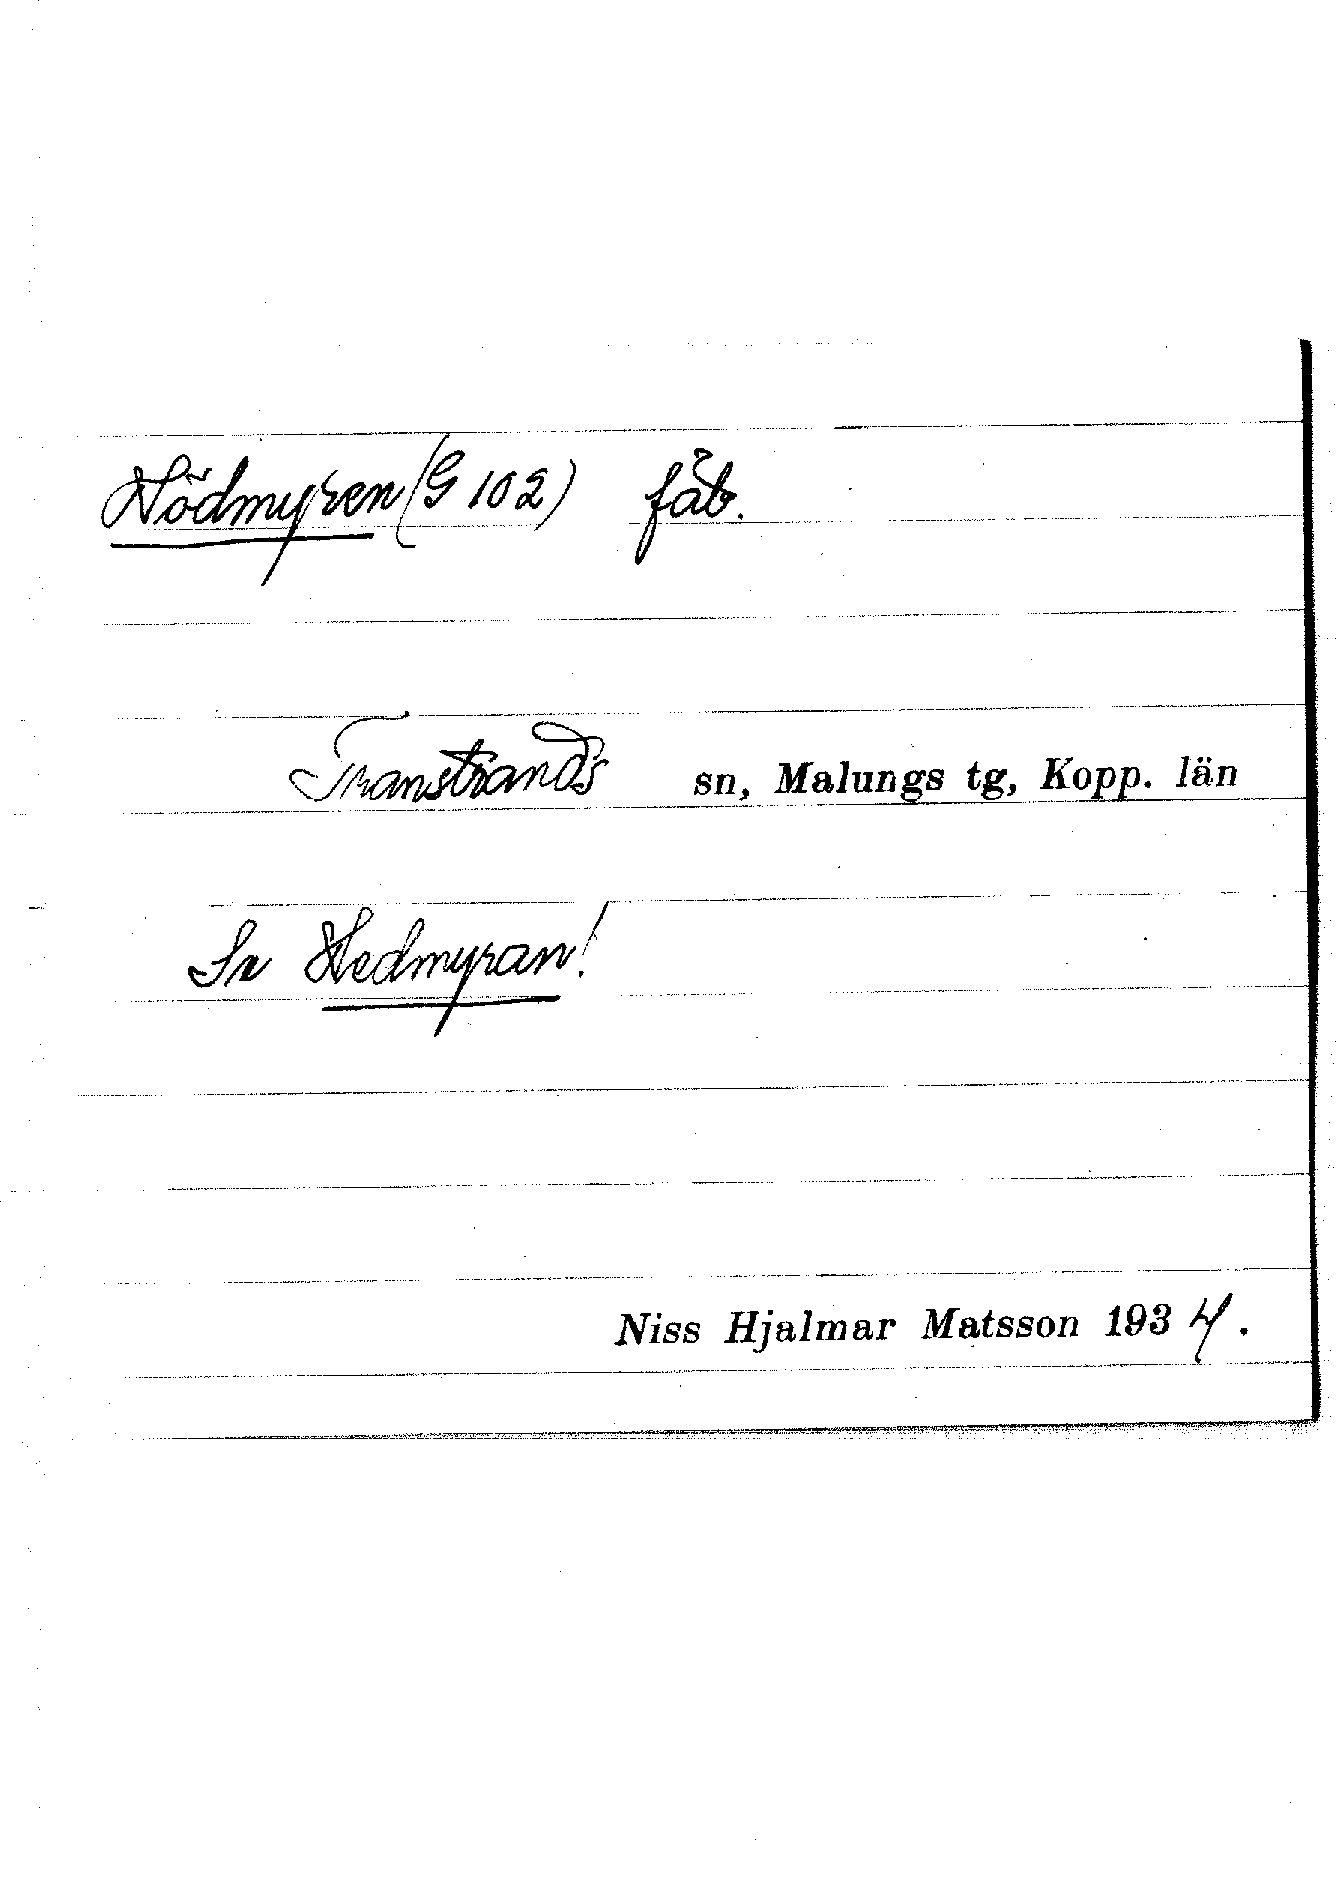 Hödmyren (G 102) fäb.
Transtrands sn, Malungs tg, Kopp. län
Se Hedmyran!
Niss Hjalmar Matsson 1934.